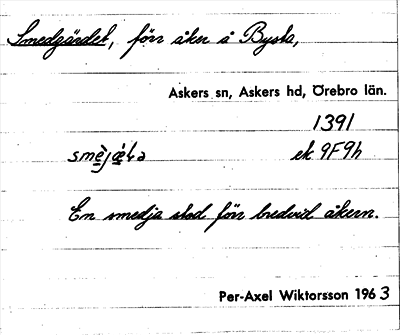 Smedgärdet, förr åker å Bysta,
Askers sn, Askers hd, Örebro län.
1391
ek 9F9h
En smedja stod förr bredvid åkern.
Per-Axel Wiktorsson 1963